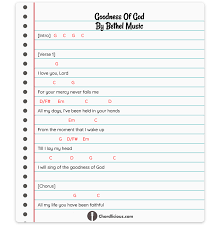 Goodness Of God
By Bethel Music
[Intro] G C G C
[Verse 1]
G
I love you, Lord
C G
For your mercy never fails me
D/F# Em C D
All my days, I've been held in your hands
Em C
From the moment that I wake up
G D/F# Em
Till I lay my head
C D G
I will sing of the goodness of God
[Chorus]
C G
All my life you have been faithful
Chordlicious.com